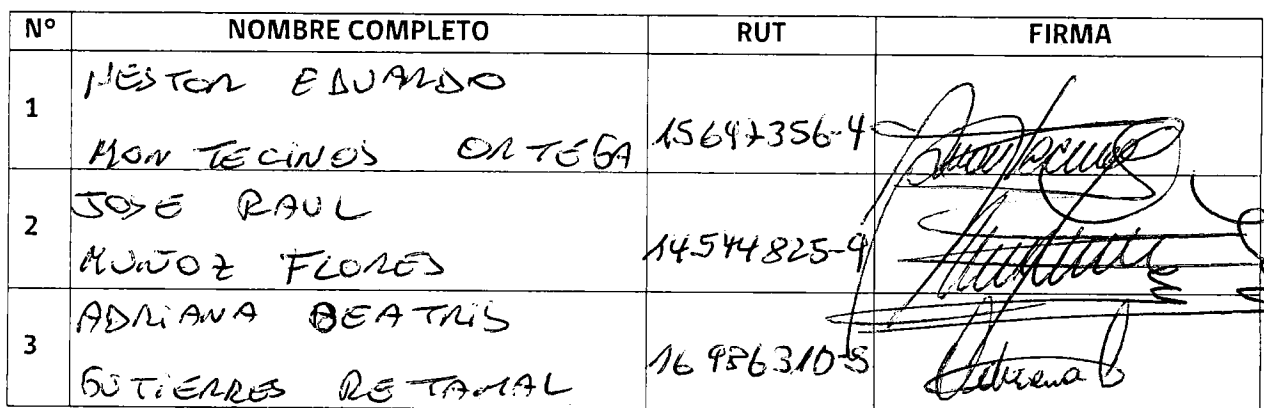 Nº NOMBRE COMPLETO RUT FIRMA
1 NESTOR EDUARDO
MONTECINOS ORTEGA 15697356-4
2 JOSE RAUL
MUÑOZ FLORES 14544825-9
3 ADRIANA BEATRIS
GUTIERRES RETAMAL 16986310-5 Adriana